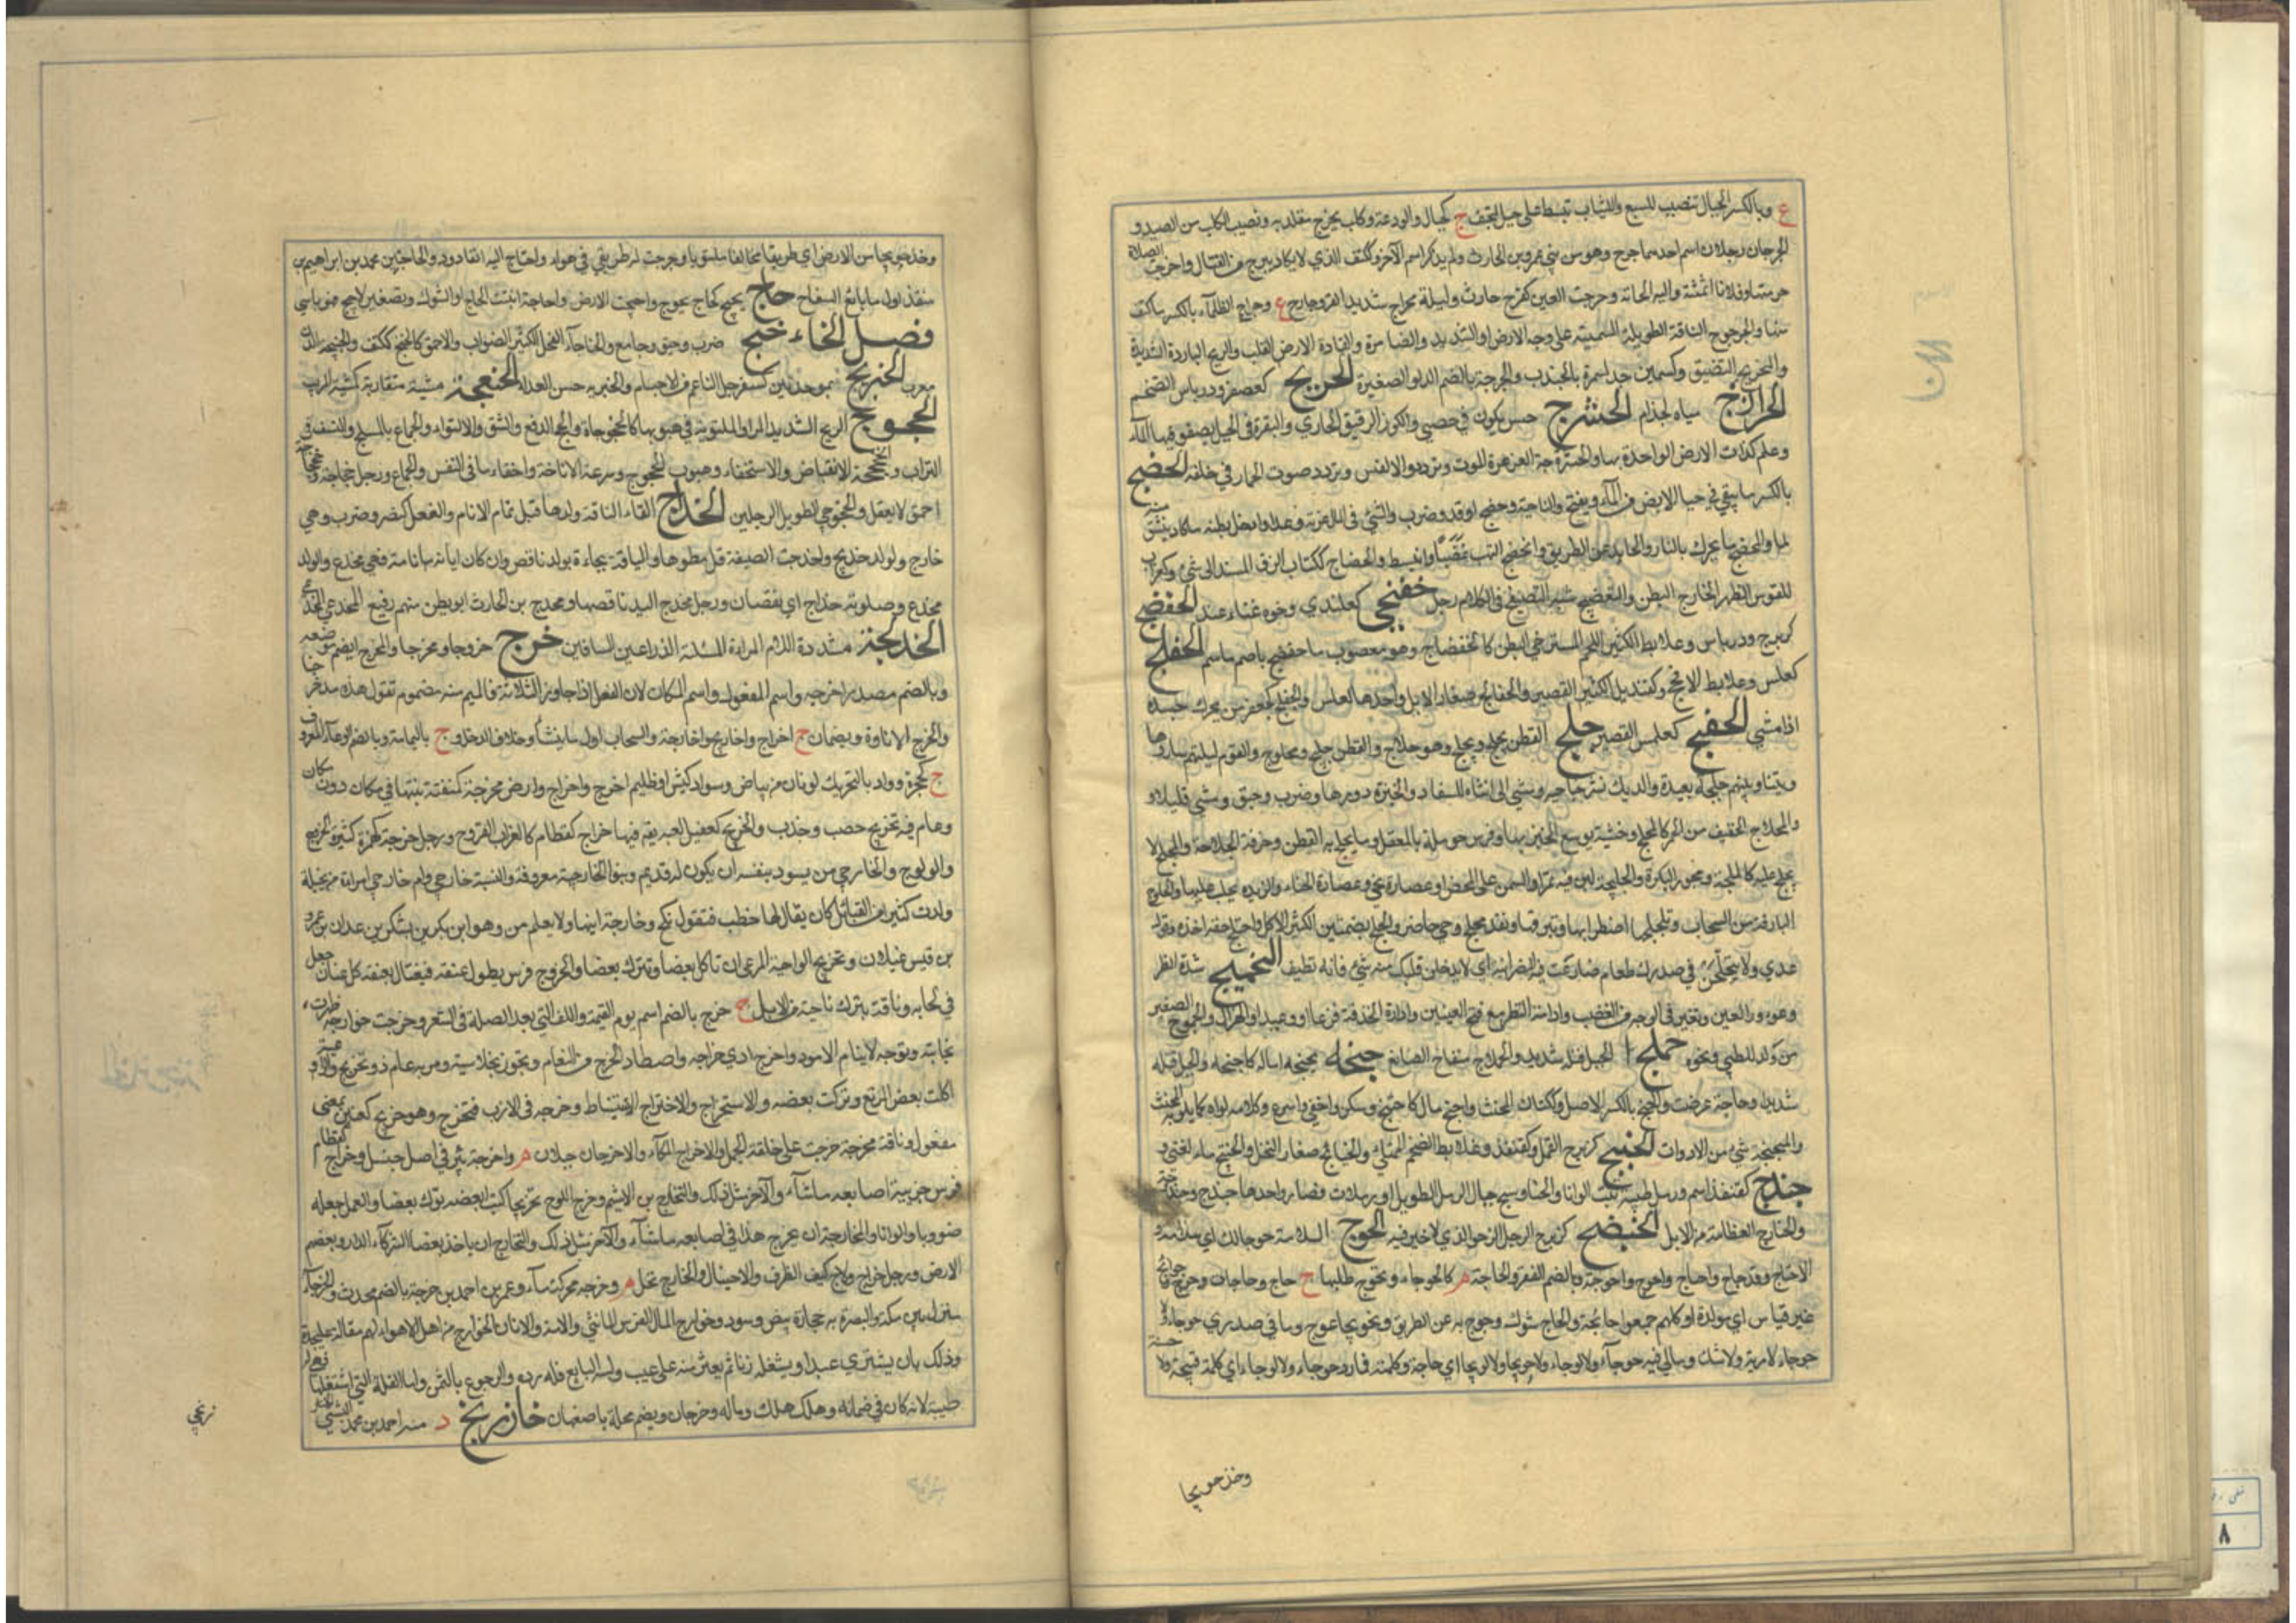 ع وبالكسر الحبال تنصب للسبع والثياب تبسط على حبل لتجف ج كجبال والودعة وكلاب محرج مقلد به ونصيب الكلب من الصيد و
الحرجان رجلان اسم احدهما حرج وهو من بني عمرو بن الحارث ولم يذكر اسم الآخر وككتف الذي لا يكاد يبرح من القتال واحرجت الصلاة
حرمتها وفلانا اثمته واليه الجاته وحرجت العين كفرح حارت وليلة محراج شديدة القر وحارج ع وحراج الظلماء بالكسر ما كثف
منها والحرجوج الناقة الطويلة السمينة على وجه الارض او الشديدة والضامرة والقادة الارض القلب والريح الباردة الشديدة
والتحريج التضييق وكسمين جد لسمرة بالجندب والحرجة بالضم الدلو الصغيرة الحربج كعصفر ودرباس الضخم
الحرازج مياه لجذام الحشرج حسي يكون في حصى والكوز الرقيق الحاري والنقرة في الجبل يصفو فيها الماء
وعلم كذات الارض الواحدة بهاء والحشرجة الغرغرة للموت وتردد النفس وتردد صوت الحمار في حلقه الحضج
بالكسر ما يبقى في حياض الابل من الماء ويفتح والناحية وحضج اوقد وضرب
لها والمحضج ما يحرك بالنار والحايد عن الطريق وانحضج التهب غضبا وانبسط والحضاج ككتاب الزق المسند الى شيء وكغراب
للقوس الظهر الخارج البطن والتحضيج شبه التضجيع في الكلام رجل حفنجى كعلندى رخو لا غناء عنده الحفضج
كزبرج ودرباس وعلابط الكثير اللحم المسترخي البطن كالحفضاج وهو معصوب ما حفضج الحفلج
كعملس وعلابط الافحج وكقنديل الكثير القصير والحفالج صغار الابل واحدها كعملس والحفلج كجعفر من يحرك جسده
اذا مشى الحفنج كعملس القصير حلج القطن يحلج ويحلج وهو حلاج والقطن حليج ومحلوج والقوم ليلتهم ساروها
وبيننا وبينهم حلجة بعيدة والديك نشر جناحيه ومشى الى انثاه للسفاد والخبزة دورها وضرب وحبق ومشى قليلا و
والمحلاج الخفيف من الحمر كالمحلج وخشبة يوسع الخبز بها وفرس حرملة بن المعقل وما يحلج به القطن وحرفته الحلاجة والمحلج ما
يحلج عليه كالمحلجة ومحور البكرة والحليجة لبن فيه تمر او السمن على المحض او عصارة نحي وعصارة الحناء والزبدة يحلب عليها
البارقة من السحاب وتحلجها اضطرابها وتبرقها ونقد محلج وحي حاضر والحلج بضمتين الكثير الاكل واحتلج حقه اخذه وقول
عدي ولا يتحلجن في صدرك طعام ضارعت فيه النصرانية اي لا يدخلن قلبك منه شيء فانه نظيف التحميج شدة النظر
وغوور العين وتغير في الوجه من الغضب وادامة النظر مع فتح العينين وادارة الحدقة فزعا او وعيدا والهزال والحموج الصغير
من ولد الظبي ونحوه حملج الحبل فتله شديدا والحملاج منفاخ الصائغ حنجه يحنجه اماله كاحنجه والحبل فتله
شديدا وحاجة عرضت والحنج بالكسر الاصل وككتان المخنث واحنج مال كاحتنج وسكن واخفى واسرع وكلامه لواه كما يلويه المخنث
والمحنجة شيء من الادوات الحنبج كزبرج القمل وكقنفذ وعلابط الضخم الممتلي والحنابج صغار النمل والحنبج ماء لغني و
حندج كقنفذ اسم ورملة طيبة تنبت الوانا
والحنادج العظام من الابل الحنضج كزبرج الرجل الرخو الذي لا خير فيه الحوج السلامة حوجا لك اي سلامة و
الاحتياج وقد حاج واحتاج واحوج واحوجته وبالضم الفقر والحاجة م كالحوجاء وتحوج طلبها ج حاج وحاجات وحوج وحوائج
غير قياس اي مولدة او كانهم جمعوا حائجة والحاج شوك وحوج به عن الطريق تحويجا عوج وما في صدري حوجاء ولا
لوجاء لا مرية ولا شك وما لي فيه حوجاء ولا لوجاء ولا حويجاء ولا لويجاء اي حاجة وكلمته فما رد حوجاء ولا لوجاء اي كلمة قبيحة ولا حسنة
وخذ حويجا
وخذ حويجا من الارض اي طريقا مخالفا ملتويا وحوجت له طريقي في هواه واحتاج اليه انقاد وذو الحاجتين محمد بن ابراهيم بن
منقذ اول من بايع السفاح حاج يحيج كحاج يحوج واحيجت الارض واحاجت انبتت الحاج اي الشوك وتصغيره حييج
فصل الخاء خبج ضرب وحبق وجامع والخباجاء الفحل الكثير الضراب والاحمق كالخبج ككتف والخنبجة الدن
معرب الخبربج بموحدتين كسفرجل الناعم من الاجسام والخبربجة حسن الغذاء الخبعجة مشية متقاربة كمشية المريب
الخجوج الريح الشديدة المر او الملتوية في هبوبها كالخجوجاة والخج الدفع والشق والالتواء والجماع والرمي بالسلح والنسف في
التراب والخجخجة الانقباض والاستخفاء وهبوب الخجوج وسرعة الاناخة واخفاء ما في النفس والجماع ورجل خجاجة وخجخاجة
احمق لا يعقل والخجوجى الطويل الرجلين الخداج القاء الناقة ولدها قبل تمام الايام والفعل كنصر وضرب وهي
خادج والولد خديج واخدجت الصيفة قل مطرها والناقة جاءت بولد ناقص وان كانت ايامه تامة فهي مخدج والولد
مخدج وصلوته خداج اي نقصان ورجل مخدج اليد ناقصها ومخدج بن الحارث ابو بطن منهم رفيع المخدجي
الخدلجة مشددة اللام المراة الممتلئة الذراعين والساقين خرج خروجا ومخرجا والمخرج ايضا موضعه
وبالضم مصدر اخرجه واسم المفعول واسم المكان لان الفعل اذا جاوز الثلاثة فالميم منه مضموم تقول هذا مدخرجنا
والخرج الاتاوة ويضمان ج اخراج واخاريج واخرجة والسحاب اول ما ينشأ وخلاف الدخل و ع باليمامة وبالضم الوعاء المعروف
ج كجحرة وواد بالتحريك لونان من بياض وسواد كبش او ظليم اخرج وارض مخرجة كمنقشة نبتها في مكان دون مكان
وعام فيه تخريج خصب وجدب والخريج كقتيل لعبة يقال فيها خراج خراج كقطام ورجل خرجة كهمزة كثير الخروج
والولوج والخارجي من يسود بنفسه من غير ان يكون له قديم وبنو الخارجية معروفة والنسبة خارجي وام خارجة امراة من بجيلة
ولدت كثيرا من القبائل كان يقال لها خطب فتقول نكح وخارجة ابنها ولا يعلم ممن هو او هو ابن بكر بن يشكر بن عدوان بن عمرو
بن قيس عيلان وتخريج الراعية المرعى ان تاكل بعضا وتترك بعضا والخروج فرس يطول عنقه فيغتال بعنقه كل عنان جعل
في لجامه وناقة تبرك ناحية من الابل ج خرج بالضم اسم يوم القيمة والالف التي بعد الصلة في الشعر وخرجت خوارجه ظهرت
نجابته وتوجه لابرام الامور واخرج ادى خراجه واصطاد الخرج من النعام وتزوج بخلاسية ومر به عام ذو تخريج والراعية
اكلت بعض المرتع وتركت بعضه والاستخراج والاختراج الاستنباط وخرجه في الادب فتخرج وهو خريج كعنين بمعنى
مفعول وناقة مخترجة خرجت على خلقة الجمل والاخرج المكاء والاخرجان جبلان م واخرجة بئر في اصل جبل وخراج كقطام
فرس جريبة وخرج اللوح تخريجا كتب بعضه وترك بعضا والعمل جعله
ضروبا والوانا والمخارجة ان يخرج هذا من اصابعه ما شاء والآخر مثل ذلك والتخارج ان ياخذ بعض الشركاء الدار وبعضهم
الارض ورجل خراج ولاج كثير الظرف والاحتيال والخاروج نخل م وخرجة محركة ماء وعمر بن احمد بن خرجة بالضم محدث والخرجاء
منزل بين مكة والبصرة به حجارة بيض وسود وخوارج المال الفرس الانثى والامة والاتان والخوارج من اهل الاهواء لهم مقالة على حدة
وذلك بان يشتري عبدا ويستغله زمانا ثم يعثر منه على عيب دلسه البايع فله رده والرجوع بالثمن واما الغلة التي استغلها فهي له
طيبة لانه كان في ضمانه ولو هلك هلك من ماله وخرجان ويضم محلة باصفهان خازرنج د منه احمد بن محمد البشتي
زنجي
٨